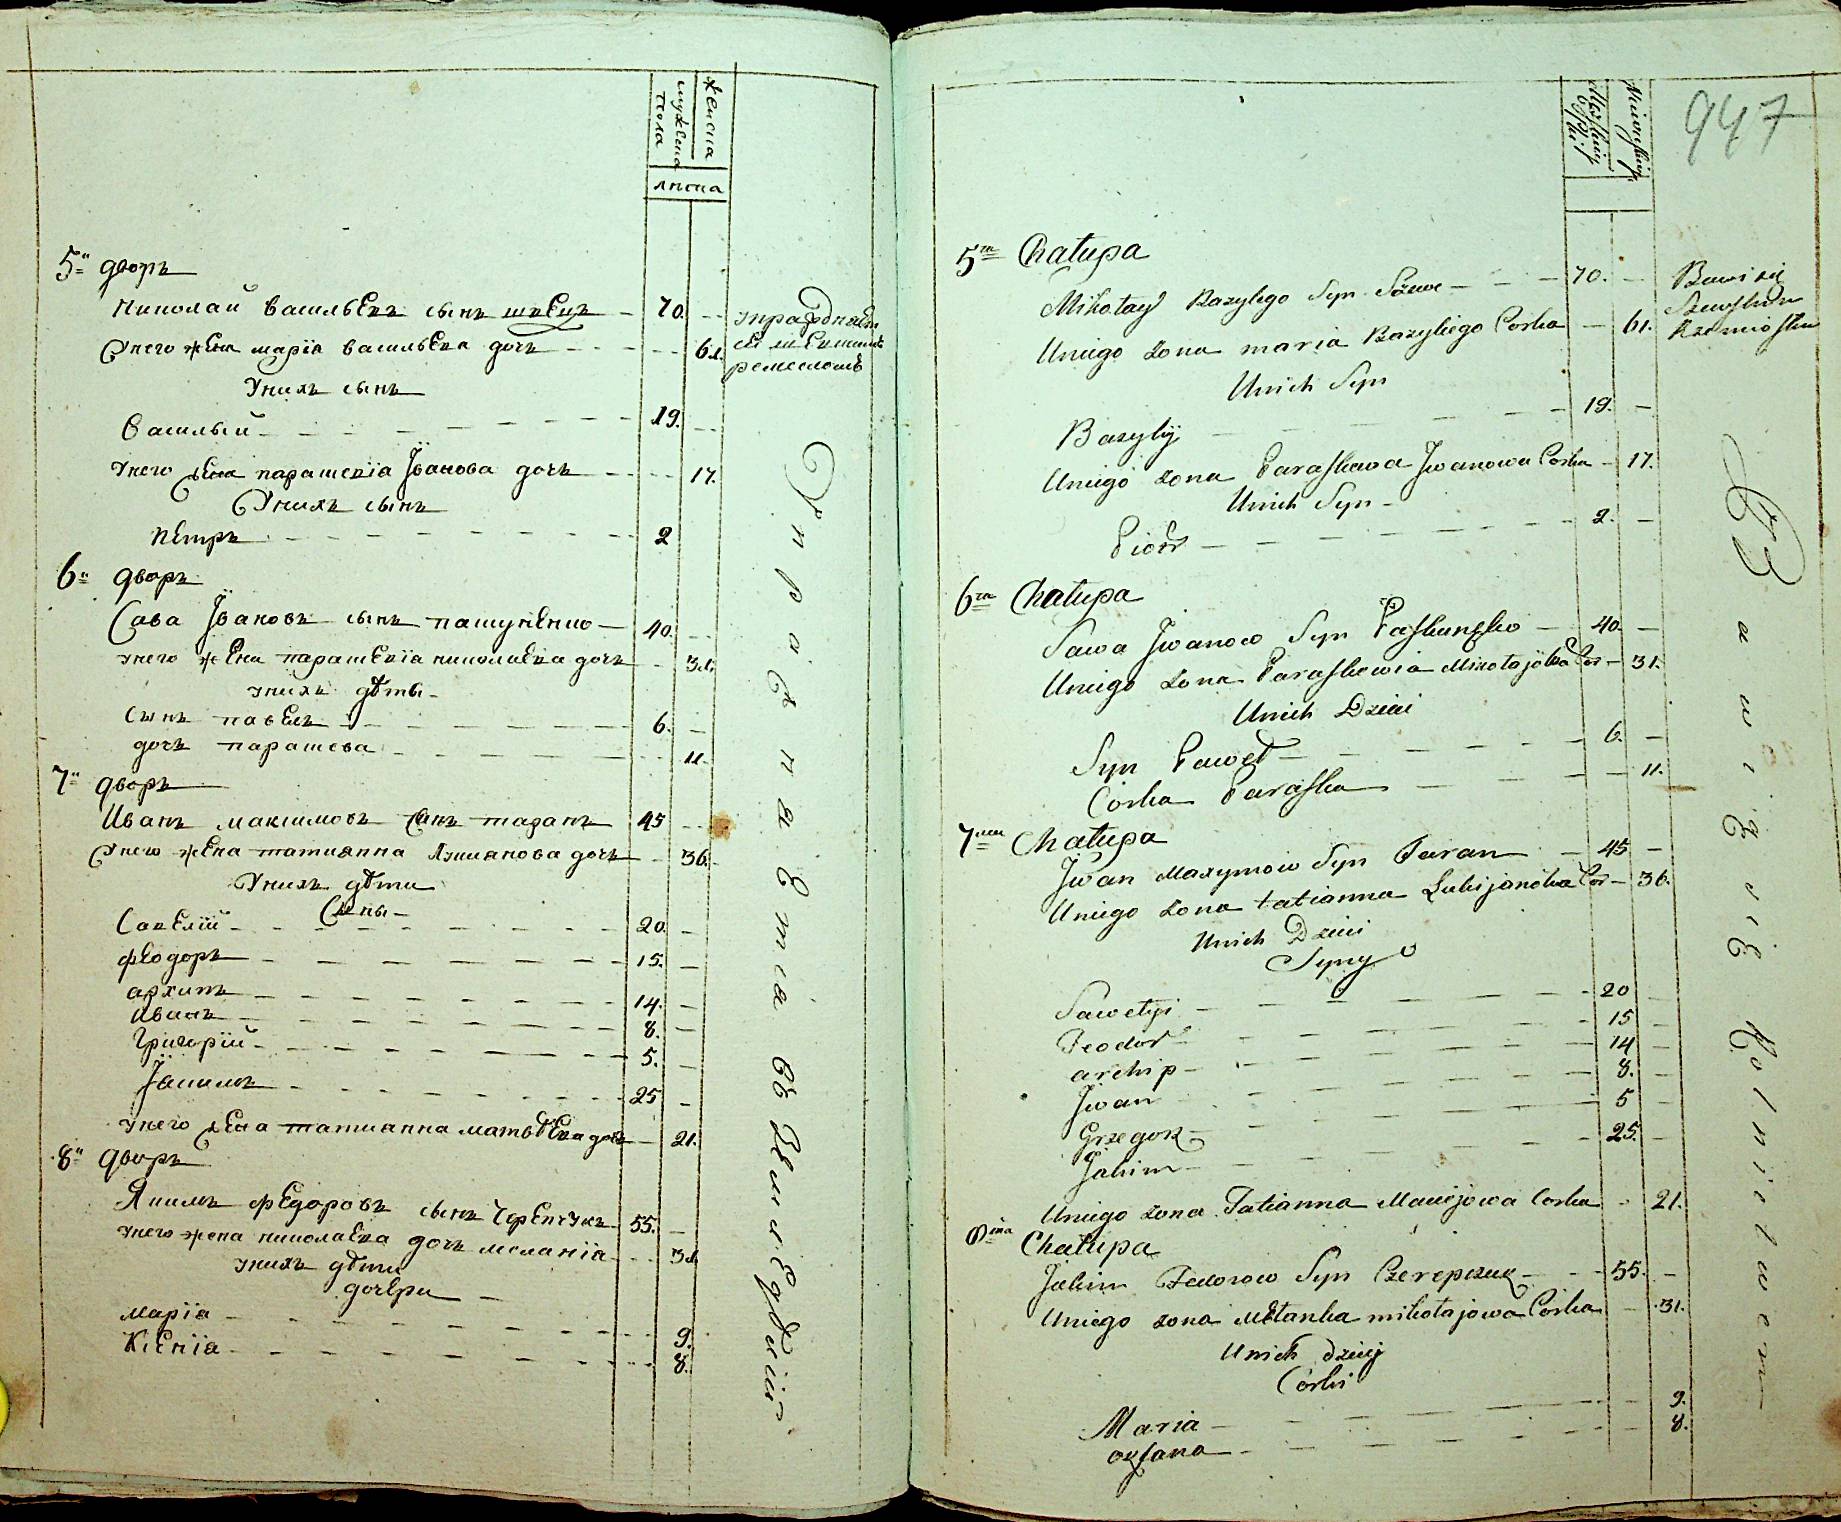 мужеска пола
женска
лѣта
5й дворъ
Николай Васильевъ сынъ швецъ 70
упражняет
У него жена Марія Васильева дочь 61
ся швецкимъ
ремесломъ
У нихъ сынъ
Василый 19
У него жена Парашевія Јванова дочь 17
У нихъ сынъ
Петръ 2
6й дворъ
Сава Јвановъ сынъ 40
У него жена Парашевія Николаева дочь 31
У нихъ дѣти
сынъ Павелъ 6
дочь Парашева 11
7й дворъ
Иванъ Максимовъ сынъ Таранъ 45
У него жена Татианна Лукианова дочь 36
У нихъ дѣти
Сыны
Савелій 20
Феодоръ 15
Архипъ 14
Иванъ 8
Григорій 5
Јакимъ 25
У него жена Татианна Матвѣева дочь 21
8й дворъ
Якимъ Федоровъ сынъ Черепчукъ 55
У него жена Николаева дочь Меланія 31
У нихъ дѣти
дочери
Марія 9
Ксенія 8
Упражняются въ Земледѣліи
947
5ta Chałupa
Mikołay Bazylego Syn Szewc 70
Bawi się
Szewskim
Rzemiosłem
Uniego żona maria Bazyliego Corka 61
Unich Syn
Bazylij 19
Uniego żona Paraskewa Jwanowa Corka 17
Unich Syn
Piotr 2
6ta Chałupa
Sawa Jwanow Syn 40
Uniego żona Paraskewia Mikołajowa Cor 31
Unich Dzieci
Syn Paweł 6
Corka Paraska 11
7ma Chałupa
Jwan Maxymow Syn Taran 45
Uniego żona tatianna Łukijanowa Cor 36
Unich Dzieci
Syny
Sawełyi 20
Feodor 15
archip 14
Jwan 8
Grzegorz 5
Jakim 25
Uniego żona Tatianna Maciejowa Corka 21
8ma Chałupa
Jakim Fedorow Syn Czerepczuk 55
Uniego żona Mełanka mikołajowa Corka 31
Unich dzieci
Córki
Maria 9
oxsana 8
Bawią się Rolnictwem